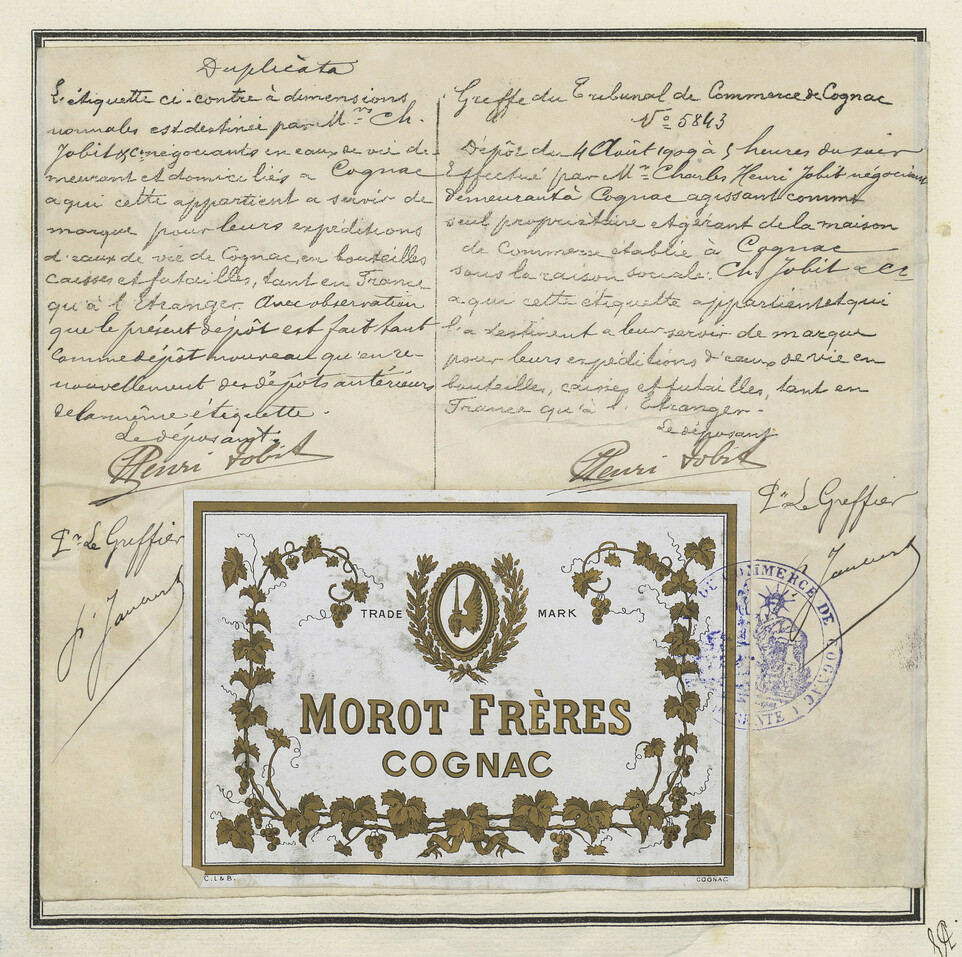 Duplicata
L'étiquette ci-contre à dimensions
normales est destinée par M.rs Ch.
Jobit & Cie négociants en eaux de vie de-
meurant et domiciliés à Cognac
a qui cette appartient a servir de
marque pour leurs expéditions
d'eaux de vie de Cognac, en bouteilles
caisses et futailles, tant en France
qu'à l'Etranger. Avec observation
que le présent dépôt est fait tant
comme dépôt nouveau qu'en re-
nouvellement des dépôts antérieurs
de la même étiquette.
Le déposant,
Henri Jobit
Pr Le Greffier
Greffe du Tribunal de Commerce de Cognac
No 5843
Dépôt du 4 Août 1909 à 5 heures du soir
Effectué par M.r Charles Henri Jobit négociant
demeurant à Cognac agissant comme
seul propriétaire et gérant de la maison
de Commerce établie à Cognac
sous la raison sociale: Ch. Jobit & Cie
a qui cette étiquette appartient et qui
l'a destinent a leur servir de marque
pour leurs expéditions d'eaux de vie en
bouteilles, caisses et futailles, tant en
France qu'à l'Etranger.
Le déposant
Henri Jobit
Pr Le Greffier
TRADE MARK
MOROT FRÈRES
COGNAC
C. L & B. COGNAC
DE COMMERCE DE COGNAC